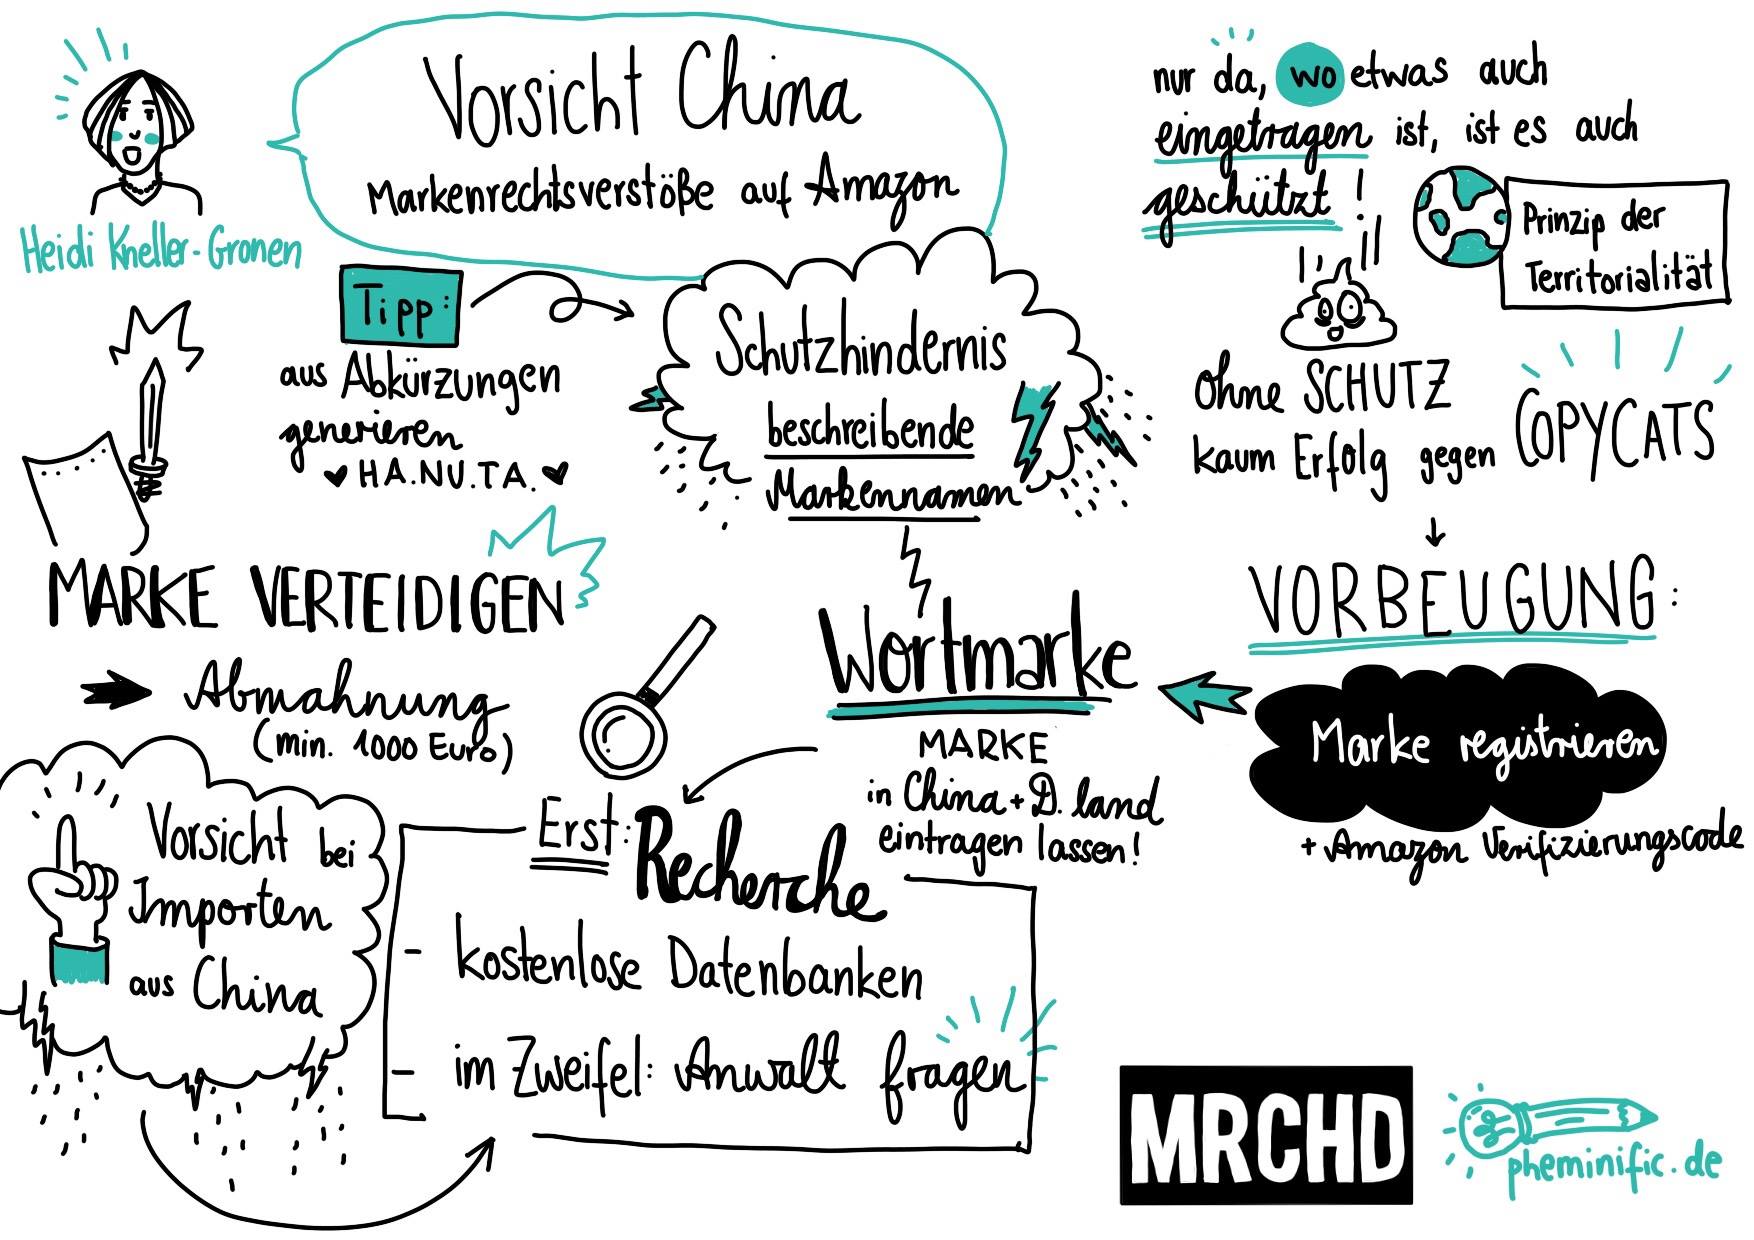 Vorsicht China
Markenrechtsverstöße auf Amazon
Heidi Kneller-Gronen
nur da, wo etwas auch
eingetragen ist, ist es auch
geschützt!
Prinzip der
Territorialität
Tipp:
aus Abkürzungen
generieren
HA.NU.TA.
Schutzhindernis
beschreibende
Markennamen
ohne SCHUTZ
kaum Erfolg gegen
COPYCATS
MARKE VERTEIDIGEN
Abmahnung
(min. 1000 Euro)
Wortmarke
MARKE
in China + D.land
eintragen lassen!
VORBEUGUNG:
Marke registrieren
+ Amazon Verifizierungscode
Vorsicht bei
Importen
aus China
Erst: Recherche
- kostenlose Datenbanken
- im Zweifel: Anwalt fragen
MRCHD
pheminific.de